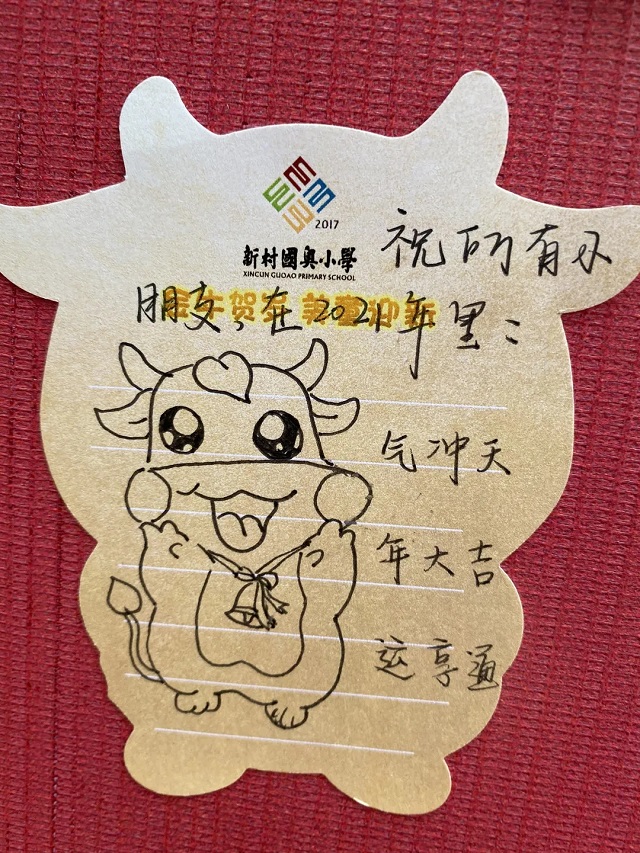 2017
新村國奧小學
XINCUN GUOAO PRIMARY SCHOOL
祝所有小
金牛贺岁 美童迎新
朋友，在2021年里：
气冲天
年大吉
运享通